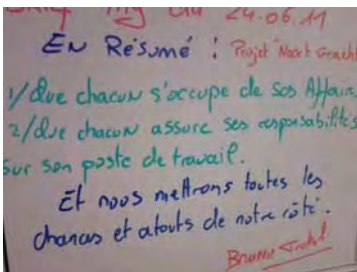 24.06.11
En Résumé : Projet
1/ Que chacun s'occupe de ses Affaires
2/ Que chacun assure ses responsabilités
sur son poste de travail.
Et nous mettrons toutes les
chances et atouts de notre côté.
Bruno